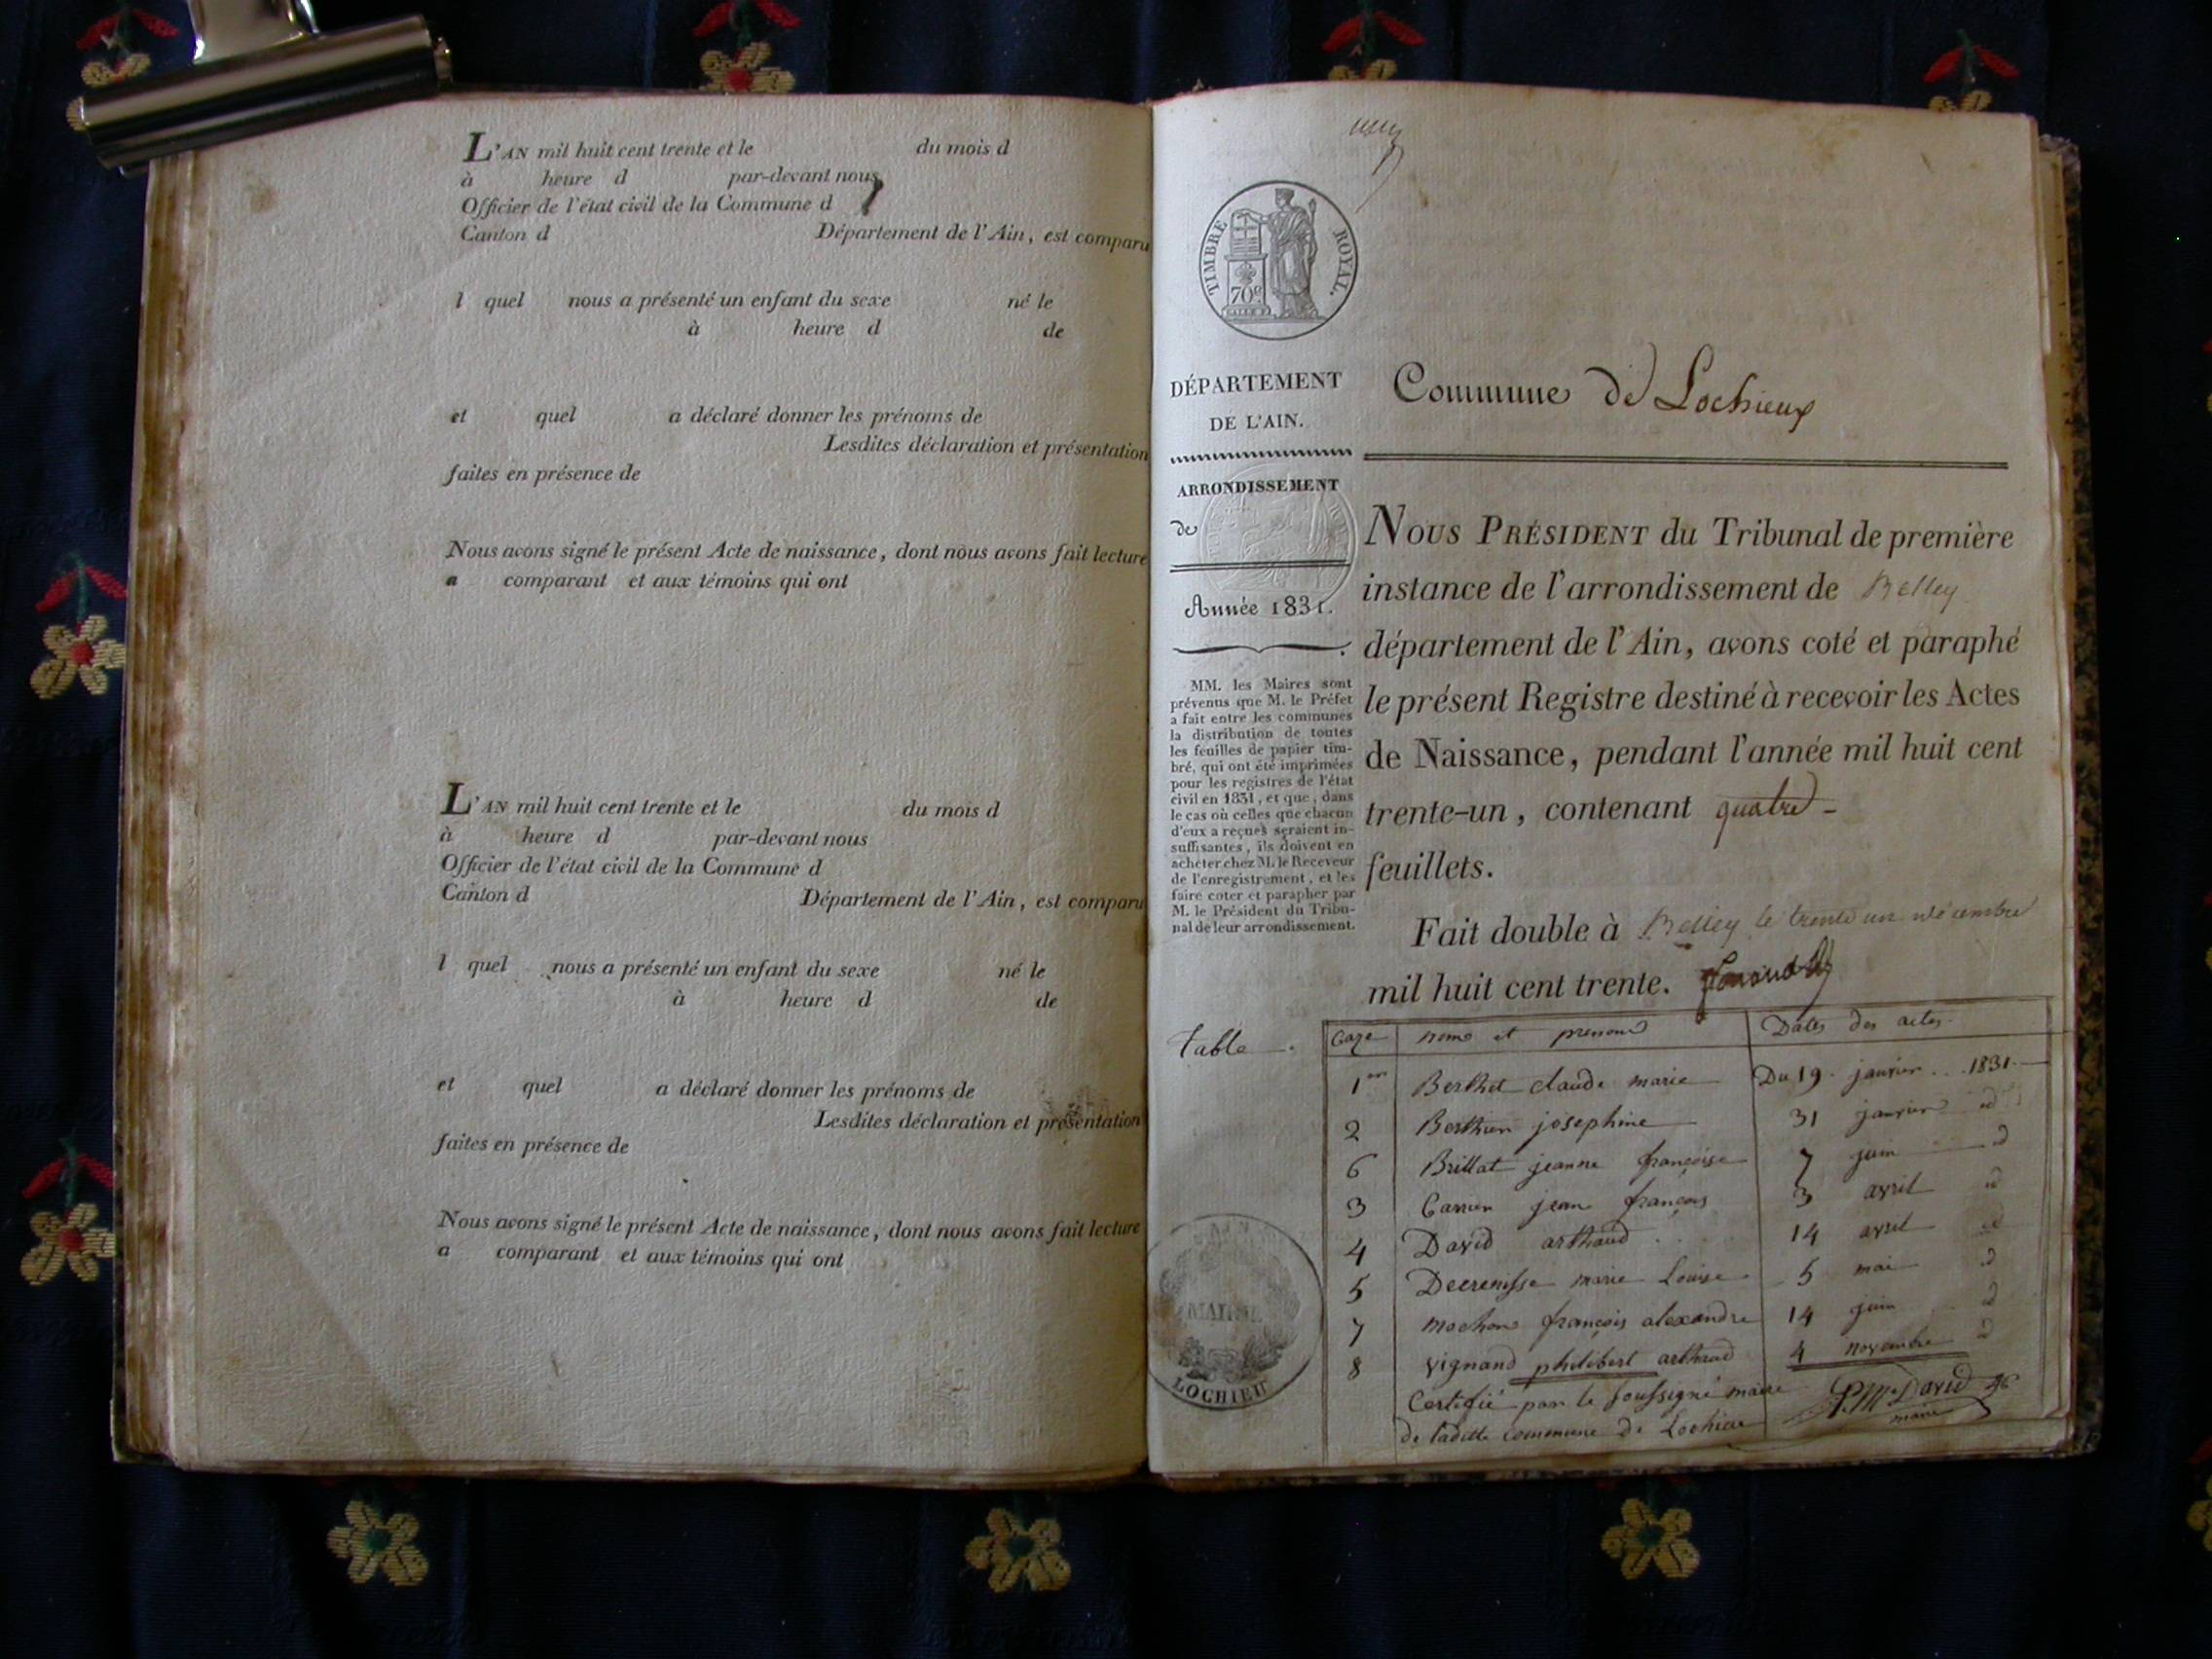 L'AN mil huit cent trente et le du mois d
à heure d par-devant nous
Officier de l'état civil de la Commune d
Canton d Département de l'Ain, est comparu
l quel nous a présenté un enfant du sexe né le
à heure d de
et quel a déclaré donner les prénoms de
Lesdites déclaration et présentation
faites en présence de
Nous avons signé le présent Acte de naissance, dont nous avons fait lecture
a comparant et aux témoins qui ont
L'AN mil huit cent trente et le du mois d
à heure d par-devant nous
Officier de l'état civil de la Commune d
Canton d Département de l'Ain, est comparu
l quel nous a présenté un enfant du sexe né le
à heure d de
et quel a déclaré donner les prénoms de
Lesdites déclaration et présentation
faites en présence de
Nous avons signé le présent Acte de naissance, dont nous avons fait lecture
a comparant et aux témoins qui ont
TIMBRE ROYAL.
70c
DÉPARTEMENT
DE L'AIN.
ARRONDISSEMENT
de
Année 1831.
MM. les Maires sont
prévenus que M. le Préfet
a fait entre les communes
la distribution de toutes
les feuilles de papier tim-
bré, qui ont été imprimées
pour les registres de l'état
civil en 1831, et que, dans
le cas où celles que chacun
d'eux a reçues seraient in-
suffisantes, ils doivent en
acheter chez M. le Receveur
de l'enregistrement, et les
faire coter et parapher par
M. le Président du Tribu-
nal de leur arrondissement.
Commune de Lochieux
NOUS PRÉSIDENT du Tribunal de première
instance de l'arrondissement de Belley
département de l'Ain, avons coté et paraphé
le présent Registre destiné à recevoir les Actes
de Naissance, pendant l'année mil huit cent
trente-un, contenant quatre
feuillets.
Fait double à Belley le trente un décembre
mil huit cent trente.
Table
Caze noms et prenoms Dates des actes
1er Berthet claude marie Du 19 janvier 1831
2 Berthier josephine 31 janvier id
6 Brillat jeanne françoise 7 juin id
3 Carrier jean françois 3 avril id
4 David arthaud 14 avril id
5 Decrenisse marie Louise 5 mai id
7 mochon françois alexandre 14 juin id
8 vignand philibert arthaud 4 novembre id
Certifié par le soussigné maire
de ladite commune de Lochieu
David
maire
MAIRIE
LOCHIEU